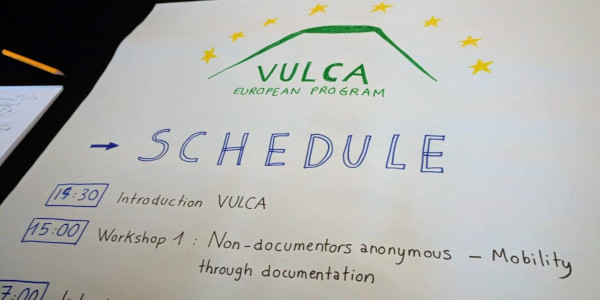 VULCA
EUROPEAN PROGRAM
→ SCHEDULE
14:30 Introduction VULCA
15:00 Workshop 1 : Non-documentors anonymous – Mobility
through documentation